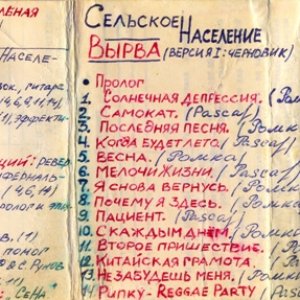 Сельское Население
Вырва (версия I: черновик).
• Пролог
1. Солнечная депрессия. (Ромка
2. Самокат. (Pascal)
3. Последняя песня. (Ромка
4. Когда будет лето. (Pascal)
5. Весна. (Ромка)
6. Мелочи жизни. (Pascal)
7. Я снова вернусь. (Ромка
8. Почему я здесь. (Ромка
9. Пациент. (Pascal)
10. С каждым днём. (Ром
11. Второе пришествие.
12. Китайская грамота.
13. Незабудешь меня. (Ром
14 Punky-Reggae Party (
льная
Населе-
гитара
4,6,9,11,14)
эффекти-
ций: ревер
(4,6,14)
. (1)
помог